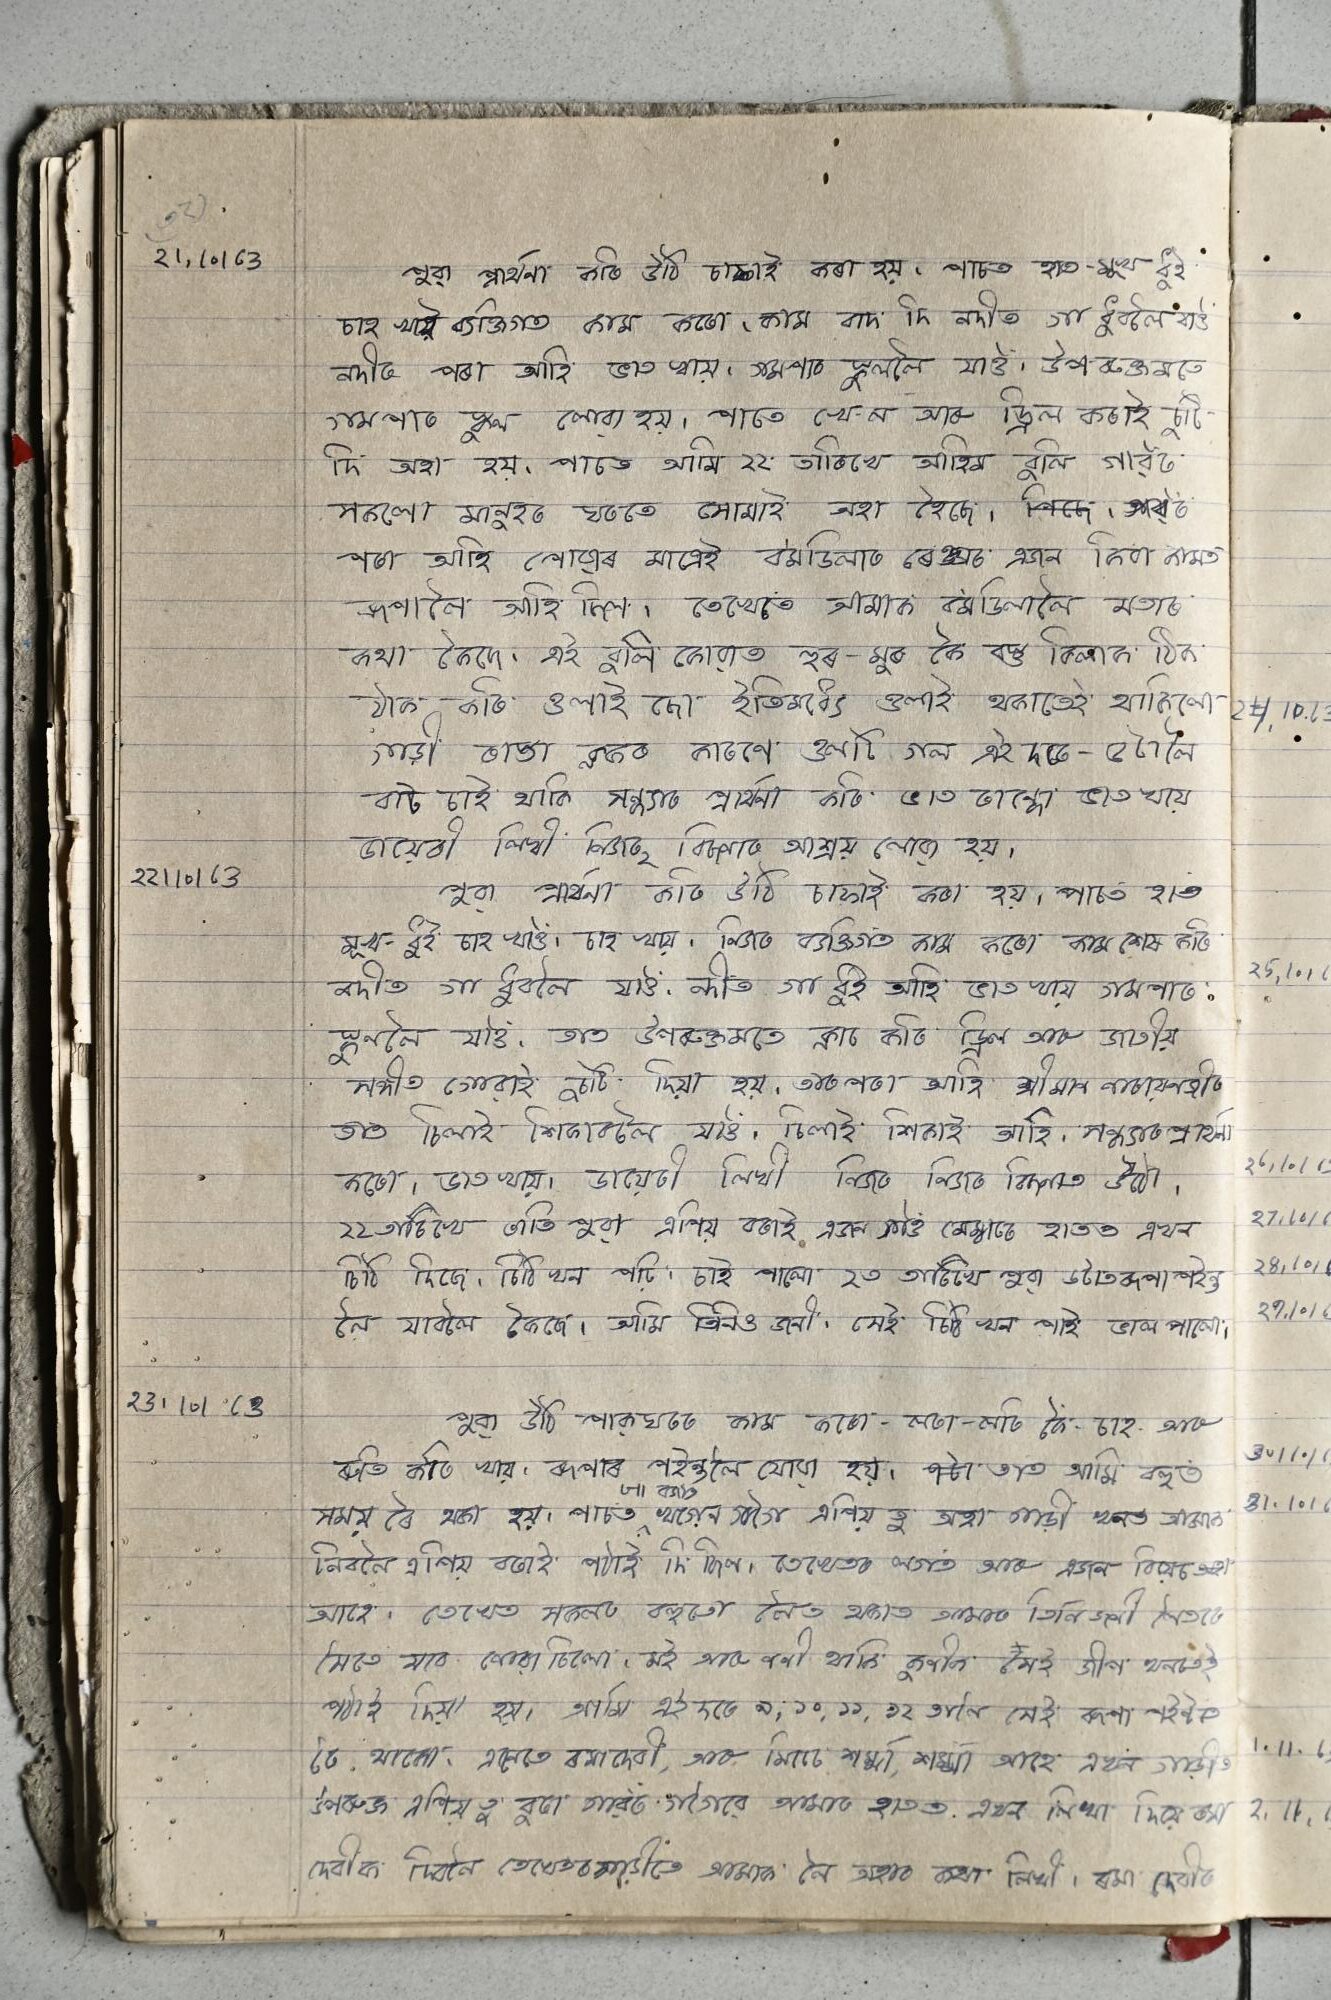 21.10.63
পুৱা প্ৰাৰ্থনা কৰি উঠি চাফাই কৰা হয়। পাচত হাত-মুখ ধুই
চাহ খাই ব্যক্তিগত কাম কৰো। কাম বাদ দি নদীত গা ধুবলৈ যাওঁ
নদীৰ পৰা আহি ভাত খায়। গমপাত স্কুললৈ যাওঁ। উপৰুক্তমতে
গমপাত স্কুল লোৱা হয়। পাচত খেল আৰু ড্ৰিল কৰাই চুটি
দি অহা হয়। পাচত আমি ২২ তাৰিখে আহিম বুলি গাৱঁৰ
সকলো মানুহৰ ঘৰতে সোমাই অহা হৈছে। গাৱঁৰ
পৰা আহি পোৱাৰ মাত্ৰেই বমডিলাৰ এজন কিবা কামত
ৰূপালৈ আহি ছিল। তেখেতে আমাক বমডিলালৈ মতাৰ
কথা কৈছে। এই বুলি কোৱাত হুৰ-মুৰ কৈ বস্তু বিলাক ঠিক
ঠাক কৰি ওলাই ছো ইতিমধ্যে ওলাই থকাতেই থাকিলো
গাড়ী ৰাস্তা ব্লকৰ কাৰণে ওলটি গল এই দৰে - টালৈ
বাট চাই থাকি সন্ধ্যাত প্ৰাৰ্থনা কৰি ভাত ৰান্ধো ভাত খায়
ডায়েৰী লিখী নিজৰ বিচনাত আশ্ৰয় লোৱা হয়।
22.10.63
পুৱা প্ৰাৰ্থনা কৰি উঠি চাফাই কৰা হয়। পাচত হাত
মুখ-ধুই চাহ খাওঁ। চাহ খায়। নিজৰ ব্যক্তিগত কাম কৰো কাম শেষ কৰি
নদীত গা ধুবলৈ যাওঁ। নদীত গা ধুই আহি ভাত খায় গমপাত
স্কুললৈ যাওঁ। তাত উপৰুক্তমতে ক্লাচ কৰি ড্ৰিল আৰু জাতীয়
সঙ্গীত গোৱাই চুটি দিয়া হয়। তাৰপৰা আহি শ্ৰীমান নাৰায়নজীৰ
তাত চিলাই শিকাবলৈ যাওঁ। চিলাই শিকাই আহি। সন্ধ্যাত প্ৰাৰ্থনা
কৰো। ভাত খায়। ডায়েৰী লিখী নিজৰ নিজৰ বিচনাত উঠো।
২২ তাৰিখে ৰাতি পুৱা এপিয় বৰাই এজন গাওঁ মেম্বাৰে হাতত এখন
চিঠি দিছে। চিঠি খন পঢ়ি চাই পালো ২৩ তাৰিখে পুৱা ৮টাত ৰূপা পইন্ত
লৈ যাবলৈ কৈছে। আমি তিনিও জনী। সেই চিঠি খন পাই ভাল পালো।
23.10.63
পুৱা উঠি পাকঘৰত কাম কৰো - লৰা-লৰি কৈ চাহ আৰু
ৰুটি কৰি খায়। ৰূপাৰ পইন্তলৈ যোৱা হয়। তাত আমি বহুত
সময় ৰৈ থকা হয়। পাচত খগেন গগৈ এপিয় টু অহা গাড়ী খনত আমাক
নিবলৈ এপিয় বৰাই পঠাই দি ছিল। তেখেতৰ লগত আৰু এজন
আহে। তেখেত সকলৰ বহুতো লৈত থকাত আমাৰ তিনি জনী
যাব লোৱা চিলো। মই আৰু ননী থাকি কুণীক সেই জীপ খনতেই
পঠাই দিয়া হয়। আমি এই দৰে ৯, ১০, ১১, ১২ তালৈ সেই ৰূপা পইন্তত
ৰৈ থাকো। এনেতে ৰমাদেৱী, আৰু মিচেচ শৰ্ম্মা, শৰ্ম্মা আহে এখন গাড়ীত
উপৰুক্ত এপিয় টু বুঢ়া গগৈয়ে আমাৰ হাতত এখন লিখা দিয়ে ৰমা
দেৱীক দিবলৈ তেখেতৰ গাড়ীতে আমাক লৈ অহাৰ কথা লিখী। ৰমা দেৱীৰ
24.10.63
25.10.6
26.10.63
27.10.6
28.10.6
29.10.6
30.10.6
31.10.6
1.11.6
2.11.